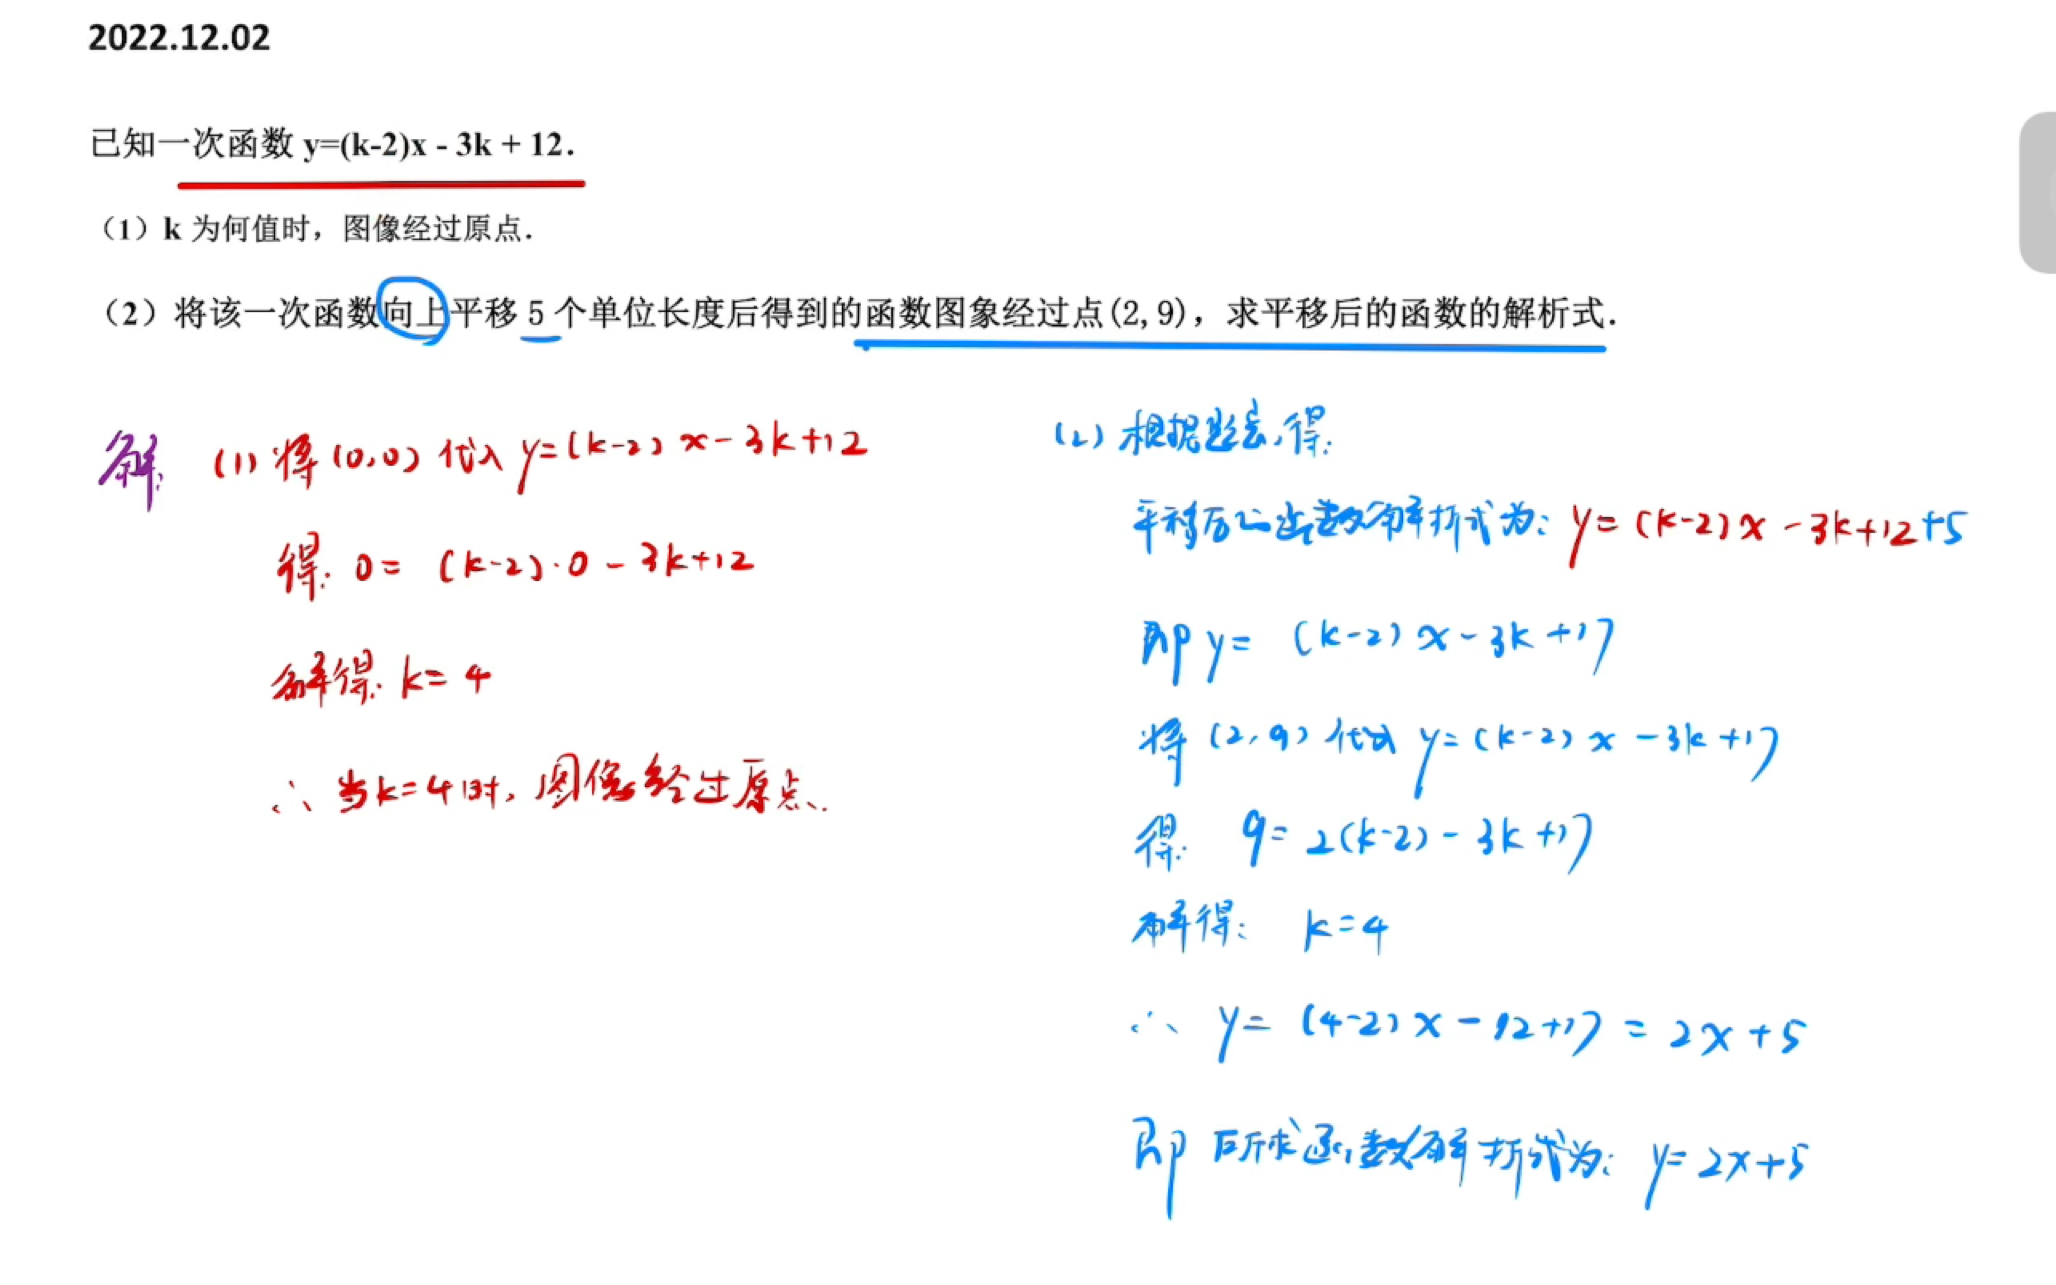 2022.12.02
已知一次函数 y=(k-2)x - 3k + 12.
（1）k 为何值时，图像经过原点.
（2）将该一次函数向上平移 5 个单位长度后得到的函数图象经过点(2,9)，求平移后的函数的解析式.
解: (1) 将 (0,0) 代入 y=(k-2)x-3k+12
得: 0= (k-2)·0-3k+12
解得: k=4
∴ 当k=4时, 图像经过原点.
(2) 根据题意,得:
平移后的函数解析式为: y=(k-2)x-3k+12+5
即 y= (k-2)x-3k+17
将 (2,9) 代入 y=(k-2)x-3k+17
得: 9=2(k-2)-3k+17
解得: k=4
∴ y= (4-2)x-12+17 = 2x+5
即 所求函数解析式为: y=2x+5